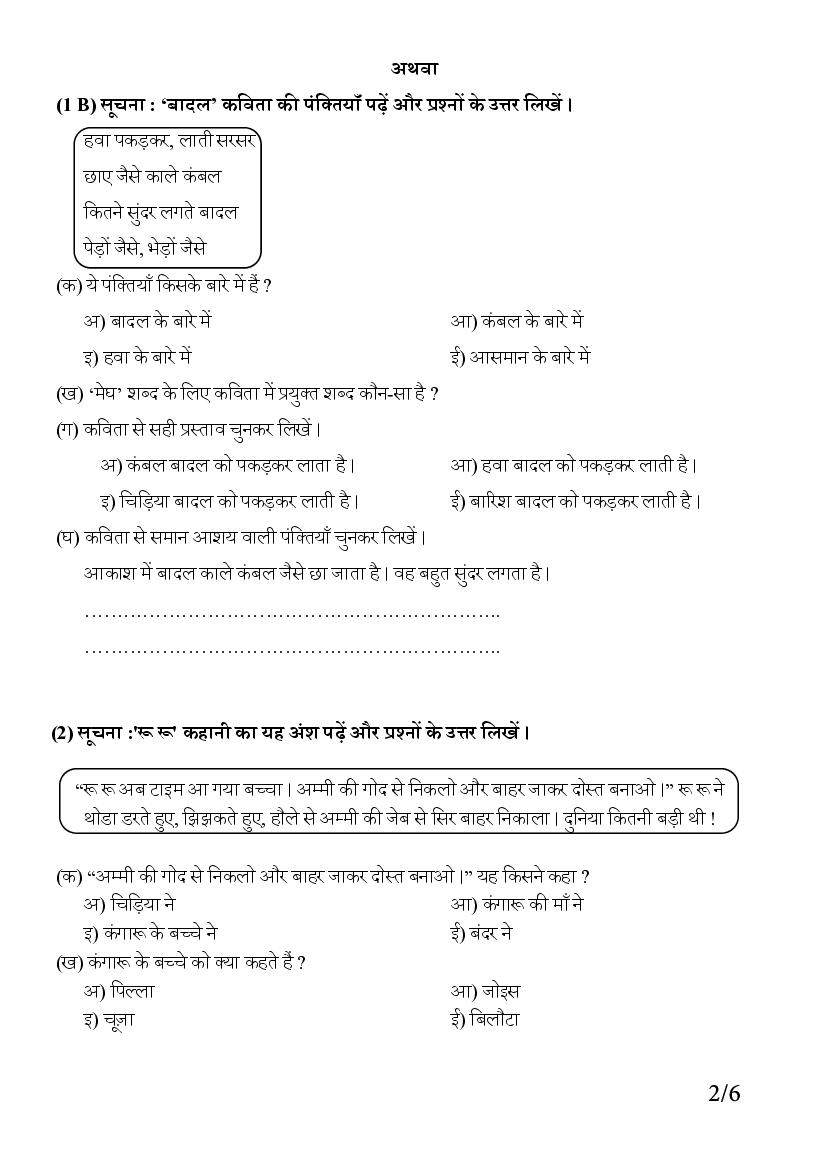 अथवा
(1 B) सूचना : ‘बादल’ कविता की पंक्तियाँ पढ़ें और प्रश्नों के उत्तर लिखें ।
हवा पकड़कर, लाती सरसर
छाए जैसे काले कंबल
कितने सुंदर लगते बादल
पेड़ों जैसे, भेड़ों जैसे
(क) ये पंक्तियाँ किसके बारे में हैं ?
अ) बादल के बारे में आ) कंबल के बारे में
इ) हवा के बारे में ई) आसमान के बारे में
(ख) ‘मेघ’ शब्द के लिए कविता में प्रयुक्त शब्द कौन-सा है ?
(ग) कविता से सही प्रस्ताव चुनकर लिखें ।
अ) कंबल बादल को पकड़कर लाता है । आ) हवा बादल को पकड़कर लाती है ।
इ) चिड़िया बादल को पकड़कर लाती है । ई) बारिश बादल को पकड़कर लाती है ।
(घ) कविता से समान आशय वाली पंक्तियाँ चुनकर लिखें ।
आकाश में बादल काले कंबल जैसे छा जाता है । वह बहुत सुंदर लगता है ।
……………………………………………………….
……………………………………………………….
(2) सूचना :'रू रू' कहानी का यह अंश पढ़ें और प्रश्नों के उत्तर लिखें ।
“रू रू अब टाइम आ गया बच्चा । अम्मी की गोद से निकलो और बाहर जाकर दोस्त बनाओ ।” रू रू ने
थोडा डरते हुए, झिझकते हुए, हौले से अम्मी की जेब से सिर बाहर निकाला । दुनिया कितनी बड़ी थी !
(क) “अम्मी की गोद से निकलो और बाहर जाकर दोस्त बनाओ ।” यह किसने कहा ?
अ) चिड़िया ने आ) कंगारू की माँ ने
इ) कंगारू के बच्चे ने ई) बंदर ने
(ख) कंगारू के बच्चे को क्या कहते हैं ?
अ) पिल्ला आ) जोइस
इ) चूज़ा ई) बिलौटा
2/6